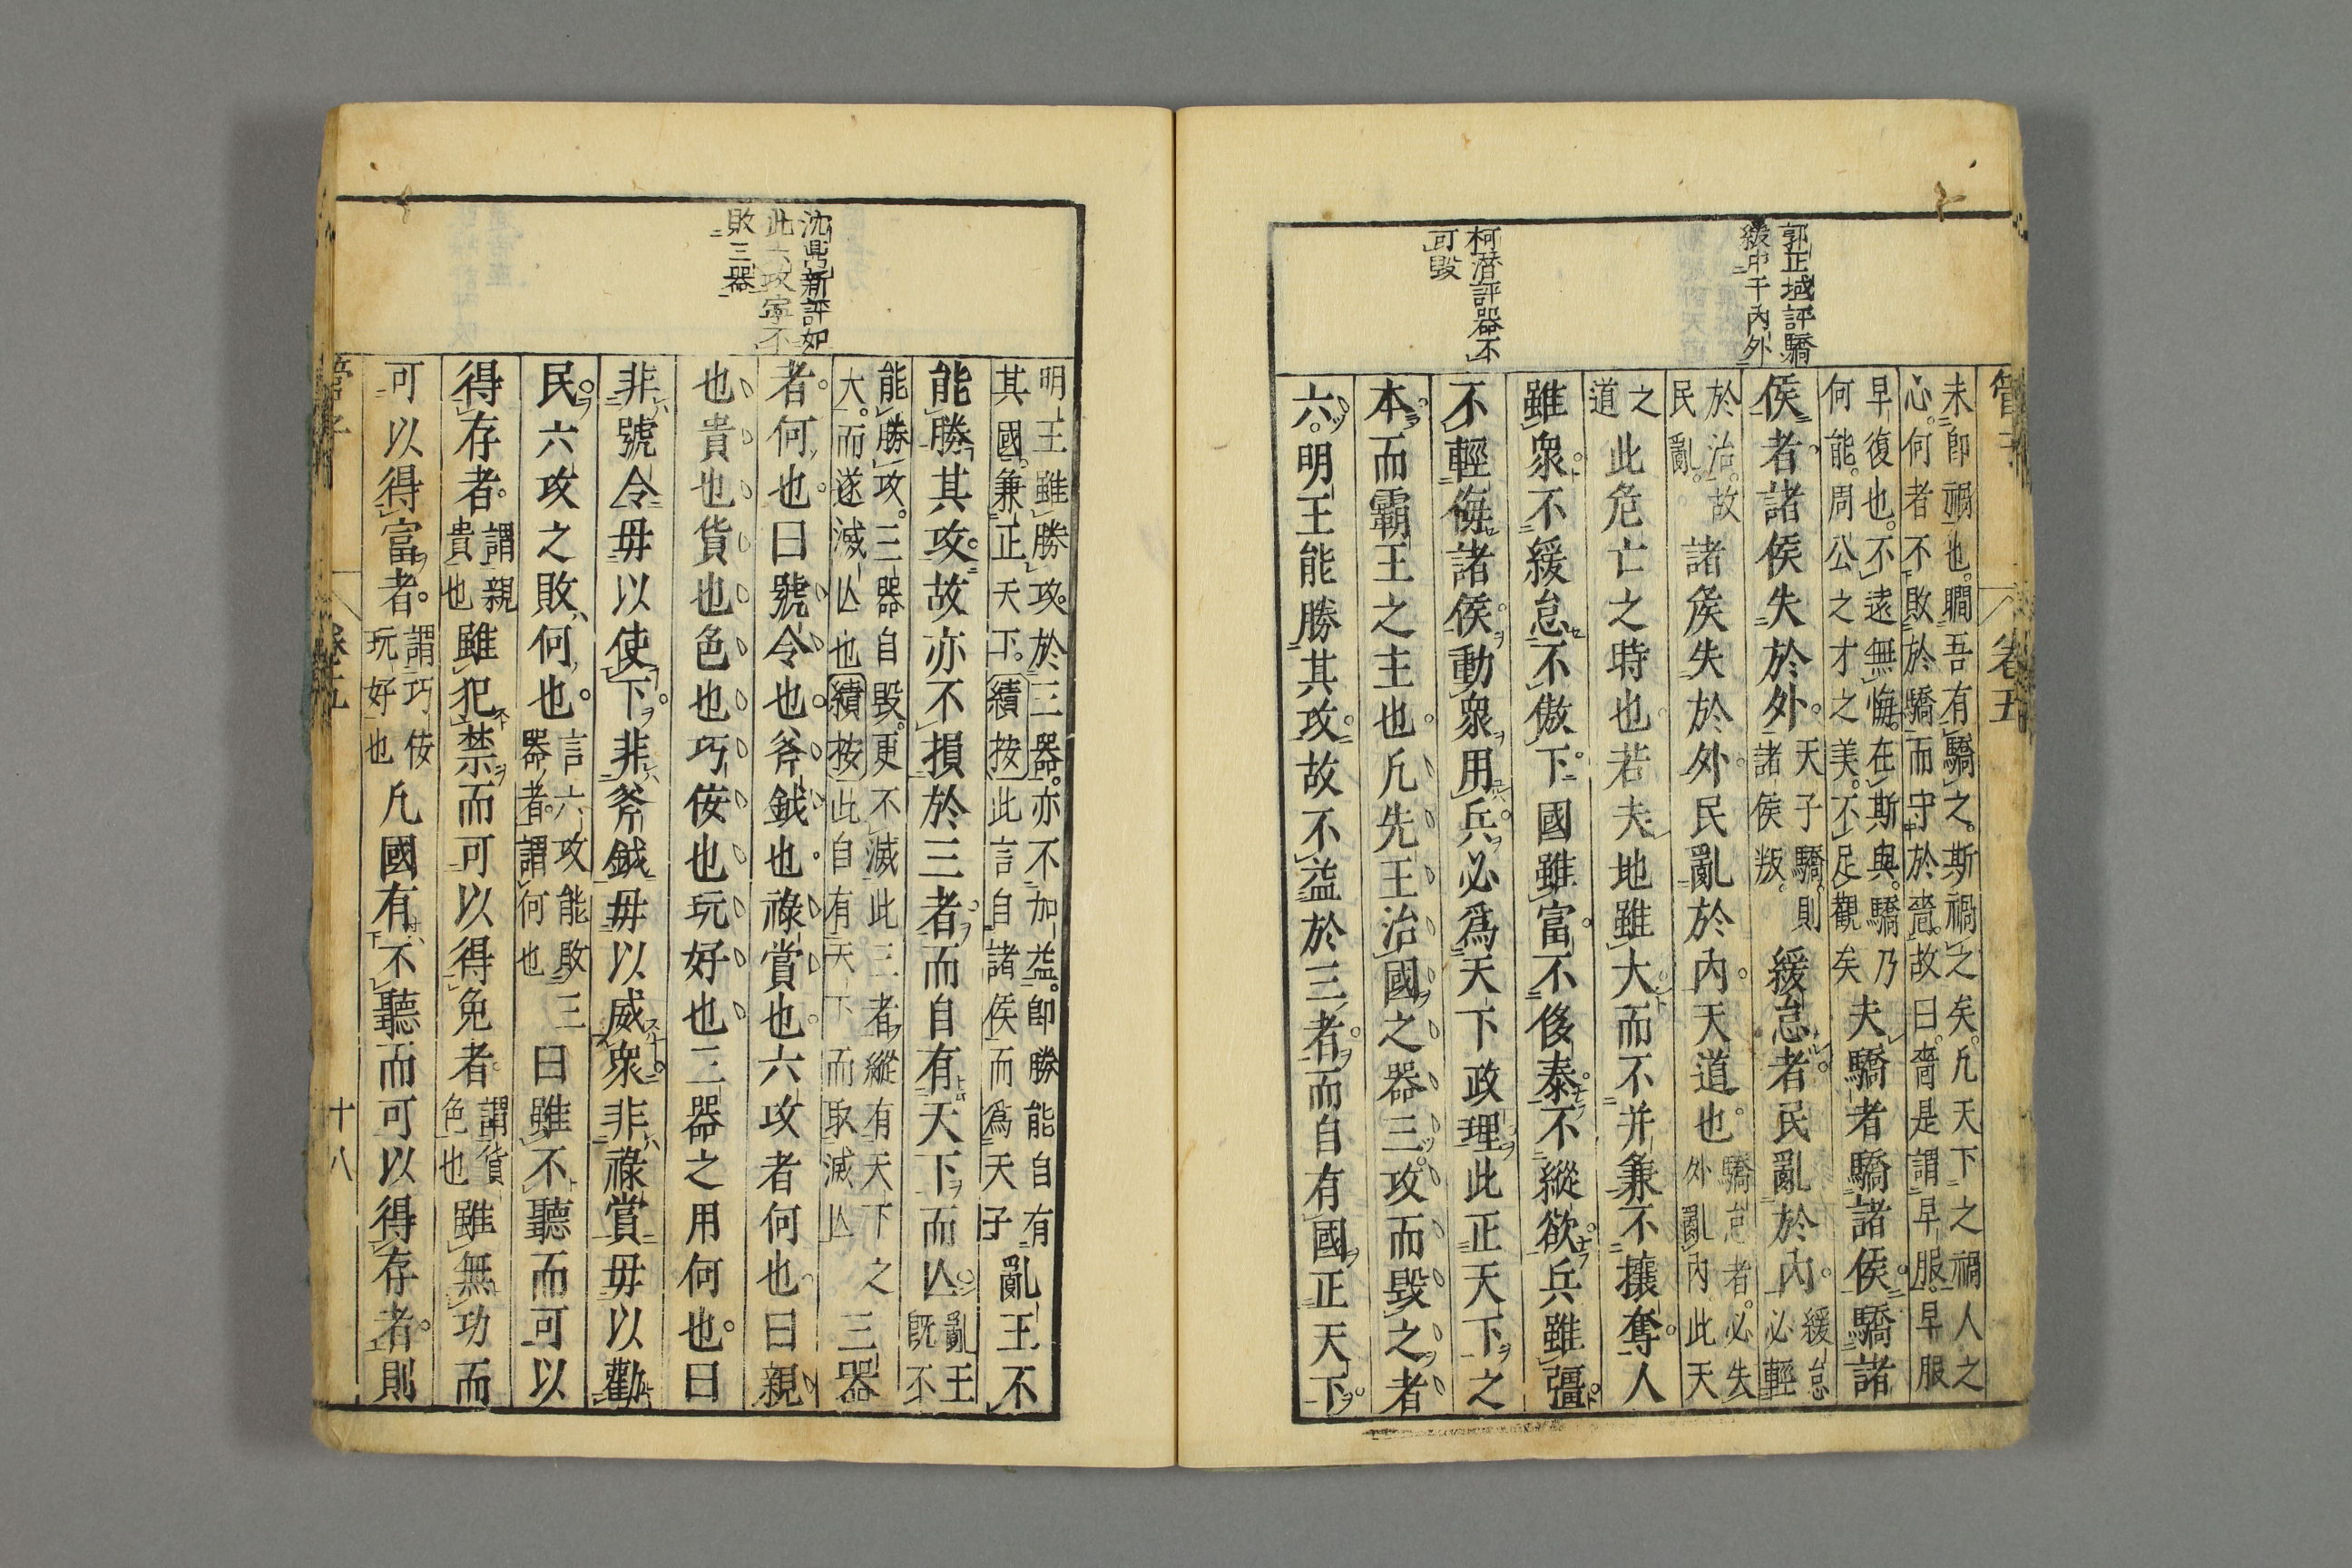 管子
卷五
郭正域評驕
緩中于內外
柯潛評器不
可毀
未即禍也瞯吾有驕之斯禍之矣凡天下之禍人之
心何者不敗於驕而守於嗇故曰嗇是謂早服早服
早復也不遠無悔在斯與驕乃
何能周公之才之美不足觀矣
夫驕者驕諸侯驕諸
侯者諸侯失於外
天子驕則
諸侯叛
緩怠者民亂於內
緩怠
必輕
於治故
民亂
諸侯失於外民亂於內天道也
驕怠者必失
外亂內此天
之
道
此危亡之時也若夫地雖大而不并兼不攘奪人
雖衆不緩怠不傲下國雖富不侈泰不縱欲兵雖彊
不輕侮諸侯動衆用兵必爲天下政理此正天下之
本而霸王之主也凡先王治國之器三攻而毀之者
六明王能勝其攻故不益於三者而自有國正天下
沈鼎新評如
此六攻寧不
敗三器
明王雖勝攻於三器亦不加益即勝能自有
其國兼正天下續按此言自諸侯而爲天子
亂王不
能勝其攻故亦不損於三者而自有天下而亾
亂王
既不
能勝攻三器自毀更不滅此三者縱有天下之
大而遂滅亾也續按此自有天下而取滅亾
三器
者何也曰號令也斧鉞也祿賞也六攻者何也曰親
也貴也貨也色也巧佞也玩好也三器之用何也曰
非號令毋以使下非斧鉞毋以威衆非祿賞毋以勸
民六攻之敗何也
言六攻能敗三
器者謂何也
曰雖不聽而可以
得存者
謂親
貴也
雖犯禁而可以得免者
謂貨
色也
雖無功而
可以得富者
謂巧佞
玩好也
凡國有不聽而可以得存者則
管子
卷五
十八